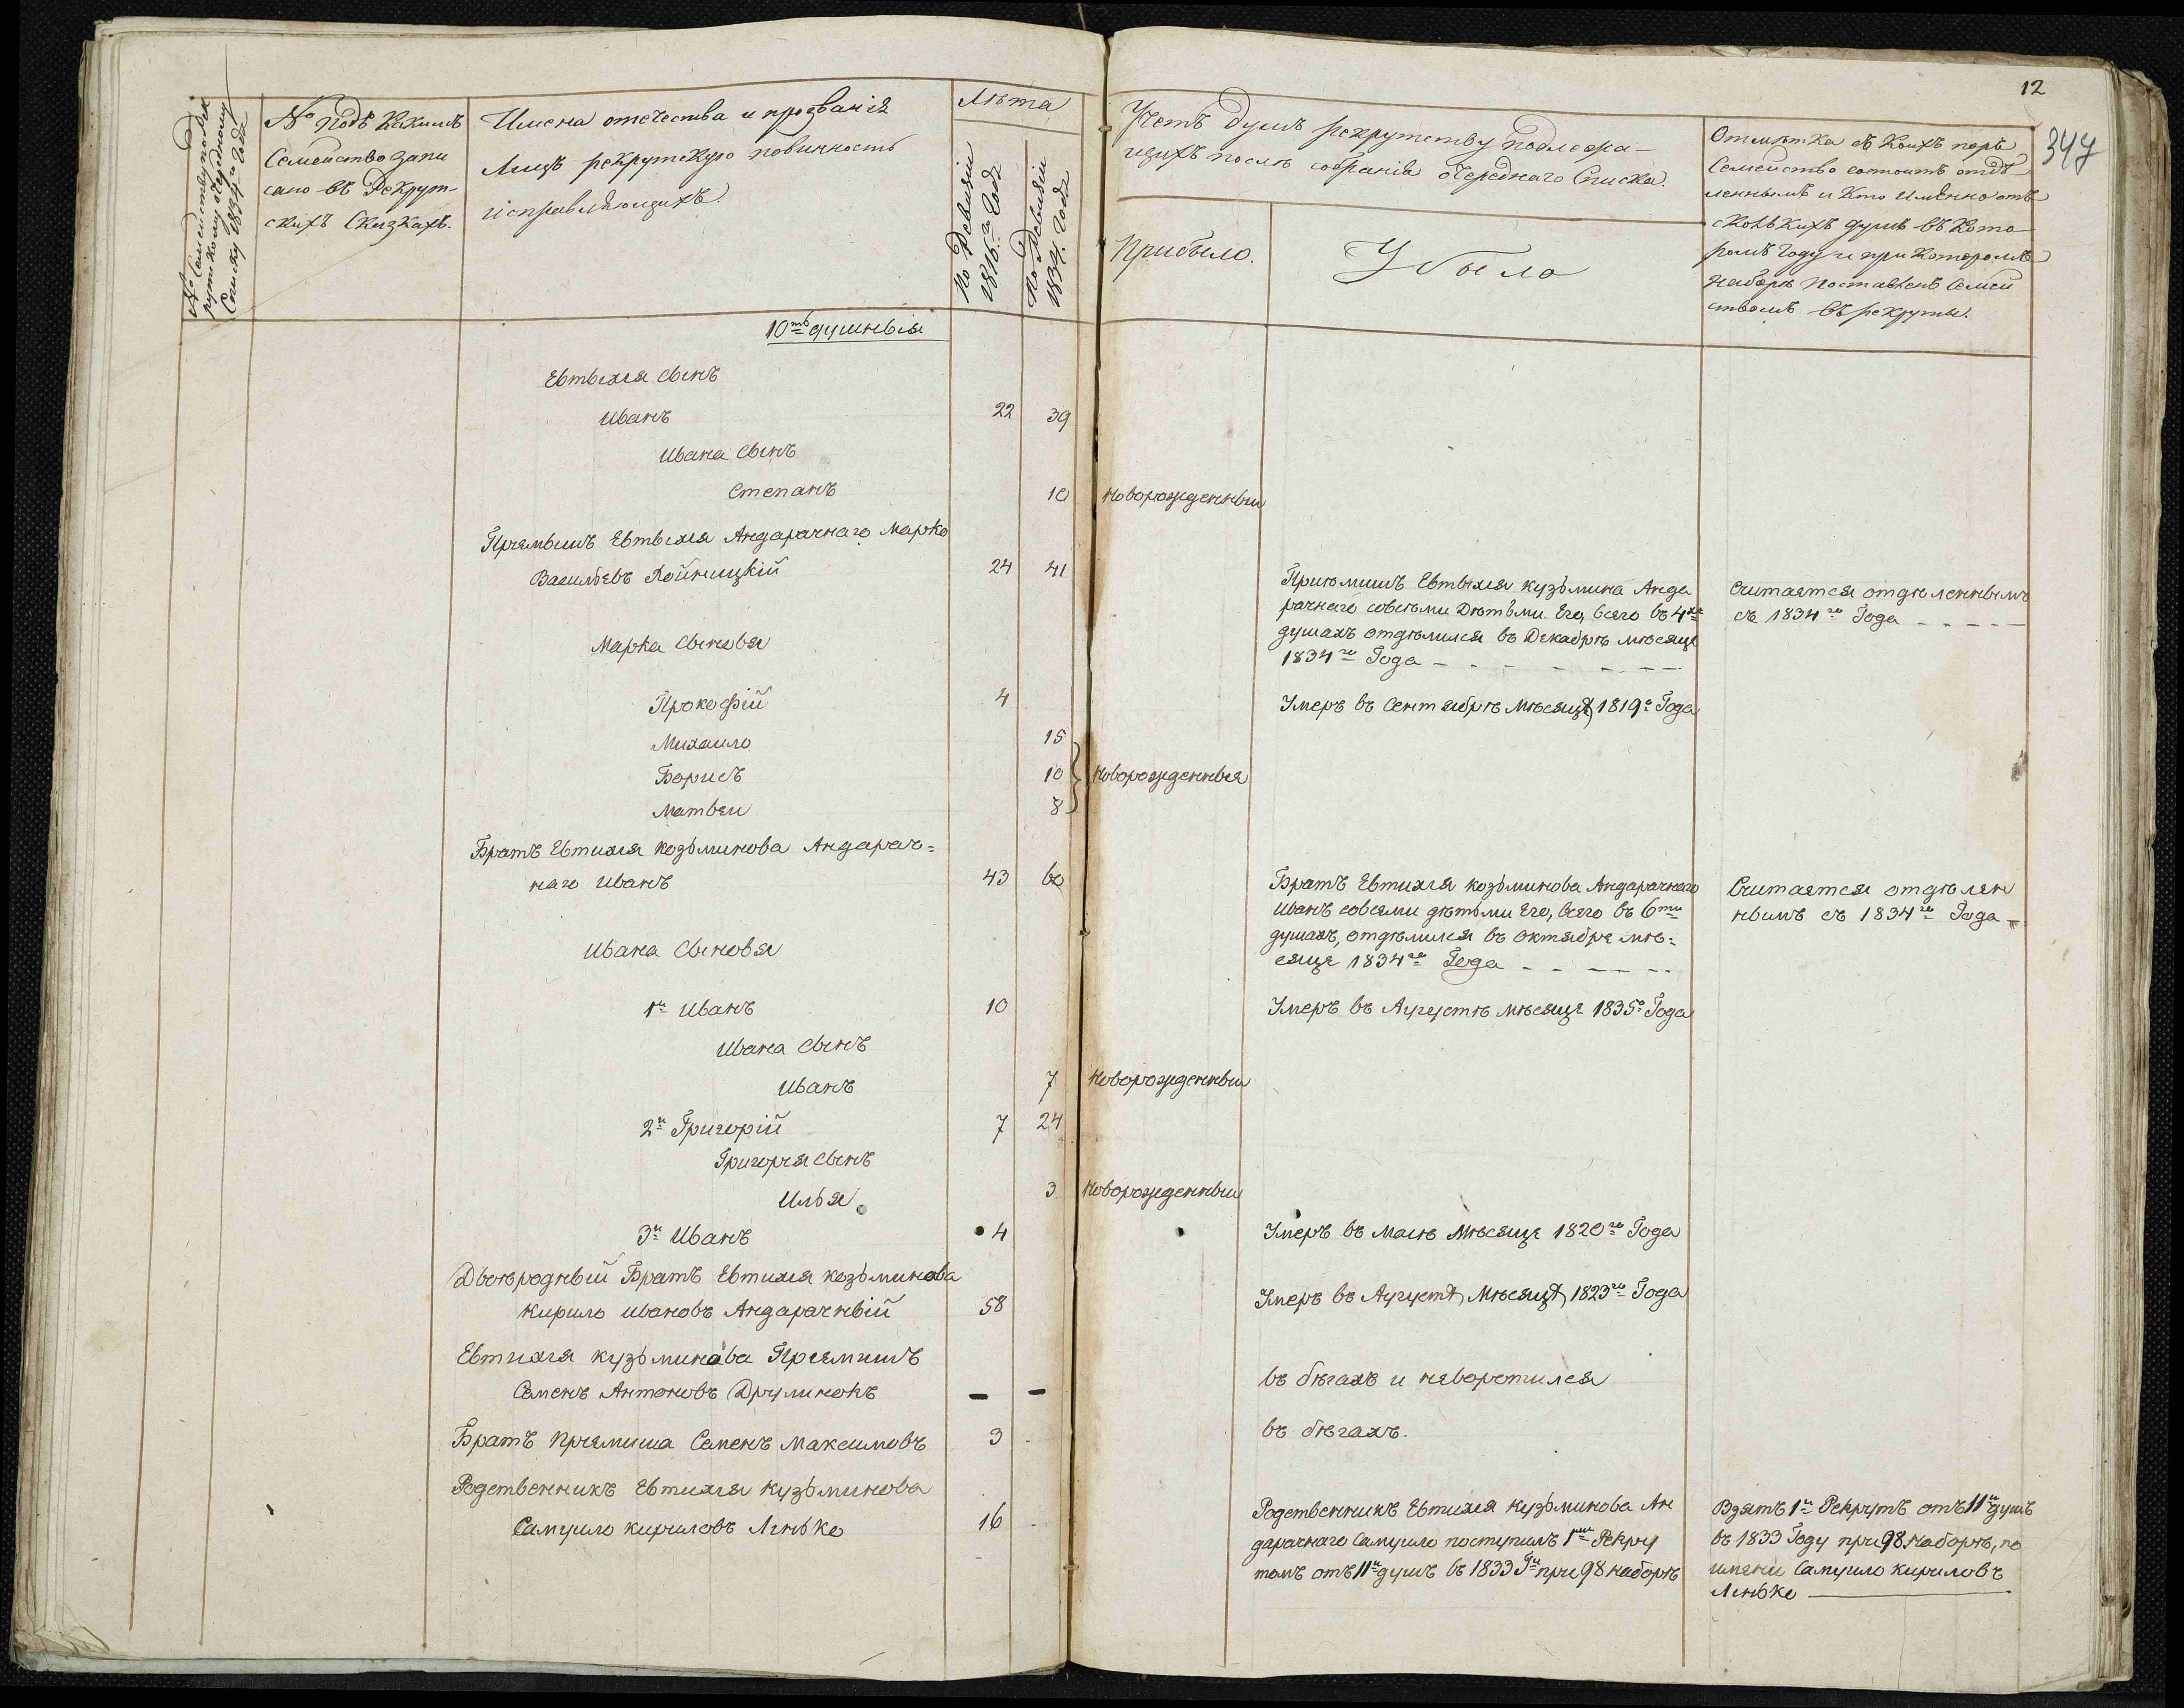 12
347
№ Семейству по Рек
рутскому очередному
Списку 1834-го Года
№ подъ Какимъ
Семейство запи
сано въ Рекрут-
скихъ Сказкахъ.
Имена отечества и прозванія
Лицъ рекрутскую повинность
исправляющихъ.
Лѣта
По Ревизіи
1816го Года
По Ревизіи
1834. Года
Учетъ душъ рекрутству подлежа-
щихъ послѣ собранія очереднаго Списка.
Прибыло.
Убыло
Отмѣтка съ Коихъ поръ
Семейство состоитъ отдѣ
леннымъ и Кто имѣнно отъ
сколькихъ душъ въ Кото
ромъ Году и при Которомъ
наборѣ поставленъ Семей
ствомъ въ рекруты.
10ть душныія
Евтыхія Сынъ
Иванъ 22 39
Ивана Сынъ
Степанъ 10 Новорожденный
Пріемышъ Евтыхія Андарачнаго Марко
Васильевъ Хойницкій 24 41
Пріѣмишъ Евтыхія Кузьмина Анда
рачнаго совсѣми Дѣтьми Его, всего въ 4хъ
душахъ отдѣлился въ Декабрѣ мѣсяцѣ
1834го Года
Считается отдѣленнымъ
съ 1834го Года
Марка Сыновья
Прокофій 4 Умеръ въ Сентябрѣ Мѣсяцѣ 1819о Года
Михаило 15
Борисъ 10 Новорожденныя
Матвеи 8
Братъ Евтихія Козьминова Андарач=
наго Иванъ 43 60
Братъ Евтихія Козьминова Андарачнаго
Иванъ совсѣми дѣтьми Его, всего въ 6ти
душахъ, отдѣлился въ Октябре мѣ=
сяце 1834го Года
Считается отдѣлен
нымъ съ 1834го Года
Ивана Сыновья
1й Иванъ 10 Умеръ въ Аугустѣ мѣсяце 1835о Года
Ивана Сынъ
Иванъ 7 Новорожденный
2й Григорій 7 24
Григорія Сынъ
Илья 3 Новорожденный
3й Иванъ 4 Умеръ въ Маѣ Мѣсяце 1820го Года
Двоюродный Братъ Евтихія Козьминова
Кирило Ивановъ Андарачный 58 Умеръ въ Аугустѣ Мѣсяцѣ 1823го Года
Евтихія Кузьминова Пріемишъ
Семенъ Антоновъ Друминокъ — — въ бѣгахъ и неворотился
Братъ Пріемиша Семенъ Максимовъ 3 въ бѣгахъ.
Родственникъ Евтихія Кузьминова
Самуило Кириловъ Линько 16
Родственникъ Евтихія Кузьминова Ан
дарачнаго Самуило поступилъ 1мъ Рекру
томъ отъ 11и душъ въ 1833 Гу при 98 наборѣ
Взятъ 1й Рекрутъ отъ 11и душъ
въ 1833 Году при 98 наборѣ, по
имени Самуило Кириловъ
Линько